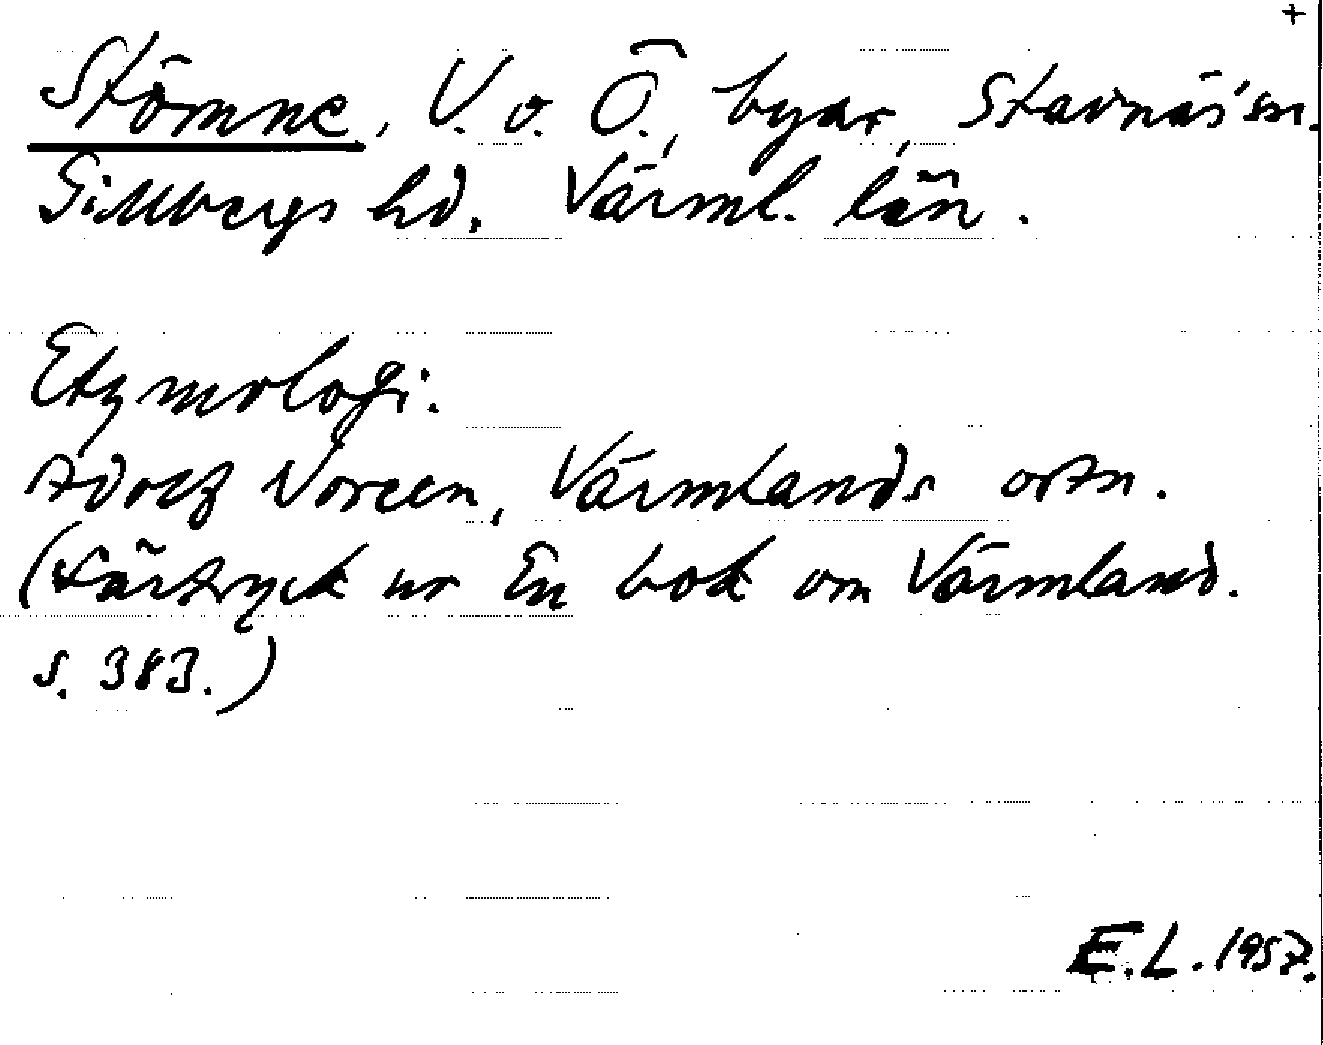 +
Stömne, V. o. Ö., byar, Stavnäs sn.
Gillbergs hd. Värml. län.
Etymologi:
Adolf Noreen, Värmlands ortn.
(Särtryck ur En bok om Värmland.
s. 383.)
E.L. 1957.